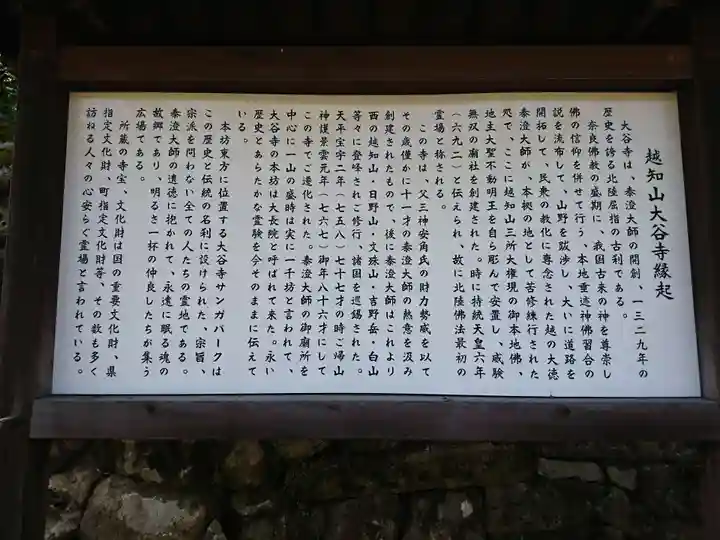 越知山大谷寺縁起
大谷寺は、泰澄大師の開創、一三二九年の
歴史を誇る北陸屈指の古刹である。
奈良佛教の盛期に、我国古来の神を尊崇し
佛の信仰を併せて行う、本地垂迹神佛習合の
説を流布して、山野を跋渉し、大いに道路を
開拓して、民衆の教化に専念された越の大徳
泰澄大師が、本拠の地として苦修練行された
処で、ここに越知山三所大権現の御本地佛、
地主大聖不動明王を自ら彫んで安置し、威験
無双の廟社を創建された。時に持統天皇六年
(六九二)と伝えられ、故に北陸佛法最初の
霊場と称される。
この寺は、父三神安角氏の財力勢威を以て
その歳僅かに十一才の泰澄大師の熱意を汲み
創建されたもので、後に泰澄大師はこれより
西の越知山・日野山・文珠山・吉野岳・白山
等々に登峰されご修行、諸国を巡錫された。
天平宝字二年(七五八)七十七才の時ご帰山
神護景雲元年(七六七)御年八十六才にして
この寺でご遷化された。泰澄大師の御廟所を
中心に一山の盛時は実に一千坊と言われて、
大谷寺の本坊は大長院と呼ばれて来た。永い
歴史とあらたかな霊験を今そのままに伝えて
いる。
本坊東方に位置する大谷寺サンガパークは
この歴史と伝統の名刹に設けられた、宗旨、
宗派を問わない全ての人たちの霊地である。
泰澄大師の道徳に抱かれて、永遠に眠る魂の
故郷であり、明るさ一杯の仲良したちが集う
広場である。
所蔵の寺宝、文化財は国の重要文化財、県
指定文化財、町指定文化財等、その数も多く
訪ねる人々の心安らぐ霊場と言われている。